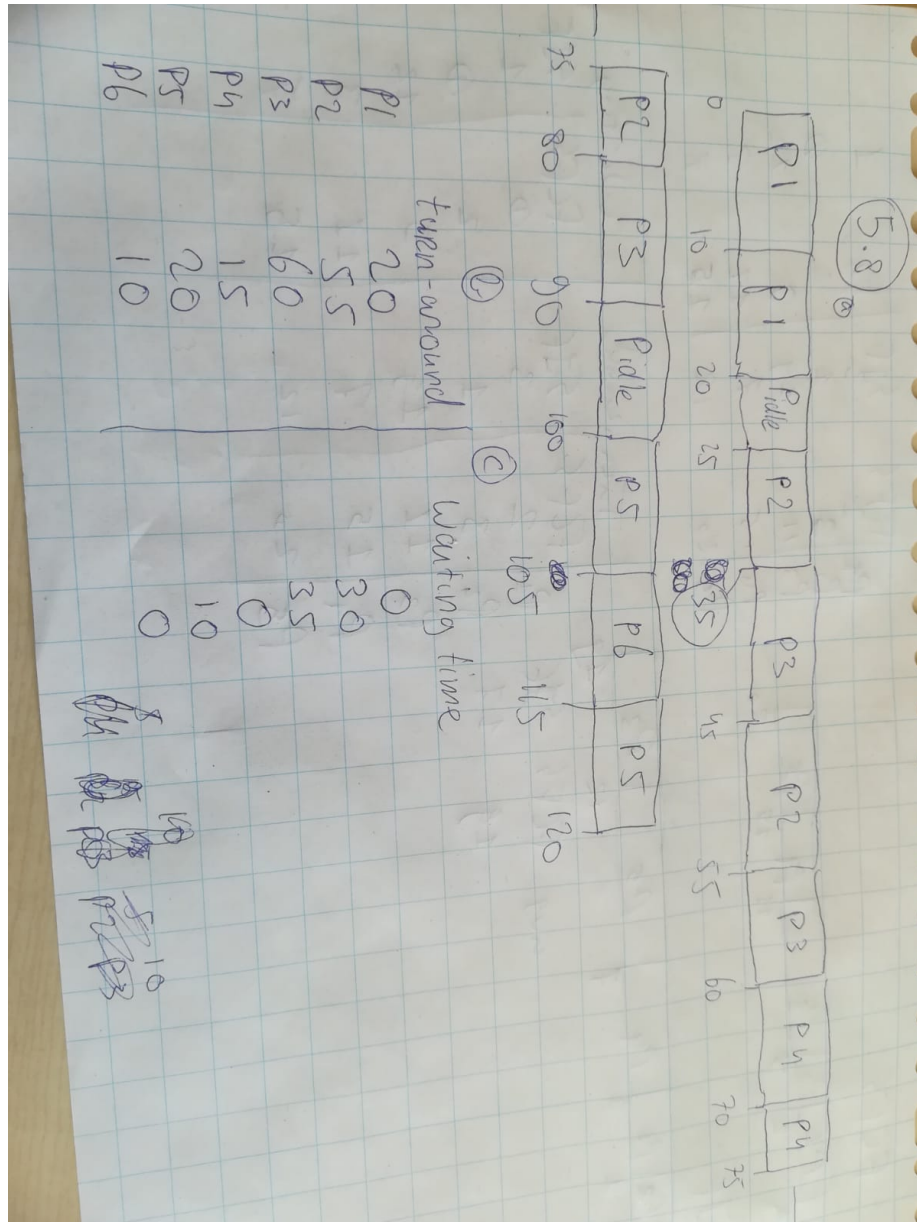 5.8
a
P1 P1 Pidle P2 P3 P2 P3 P4 P4
0 10 20 25 35 45 55 60 70 75
P2 P3 Pidle P5 P6 P5
75 80 90 100 105 115 120
b c
turn-around waiting time
P1 20 0
P2 55 30
P3 60 35
P4 15 0
P5 20 10
P6 10 0
10
P2 P3